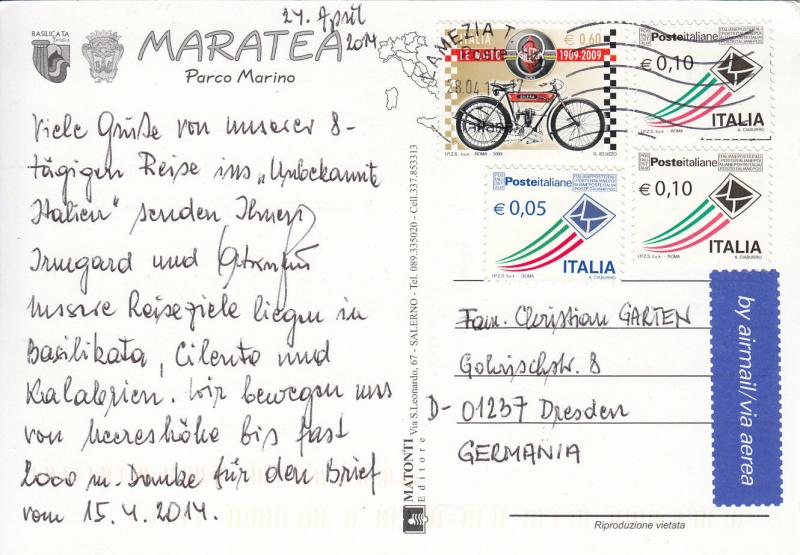 24. April
2014
BASILICATA
MARATEA
Parco Marino
Viele Grüße von unserer 8-
tägigen Reise ins „Unbekannte
Italien“ senden Ihnen
Irmgard und
Unsere Reiseziele liegen in
Basilikata, Cilento und
Kalabrien. Wir bewegen uns
von Meereshöhe bis fast
2000 m. Danke für den Brief
vom 15.4.2014.
MATONTI Via S.Leonardo, 67 - SALERNO - Tel. 089.335020 - Cell.337.853313
Editore
LAMEZIA T
28.04.1
ITALIA € 0,60
LE MOTO 1909-2009
GILERA
I.P.Z.S. S.p.A. - ROMA - 2009 G. IELUZZO
Posteitaliane
€ 0,10
ITALIA
I.P.Z.S. S.p.A. - ROMA A. CIABURRO
Posteitaliane
€ 0,05
ITALIA
I.P.Z.S. S.p.A. - ROMA A. CIABURRO
Posteitaliane
€ 0,10
ITALIA
I.P.Z.S. S.p.A. - ROMA A. CIABURRO
by airmail/via aerea
Fam. Christian GARTEN
Gohrischstr. 8
D- 01237 Dresden
GERMANIA
Riproduzione vietata